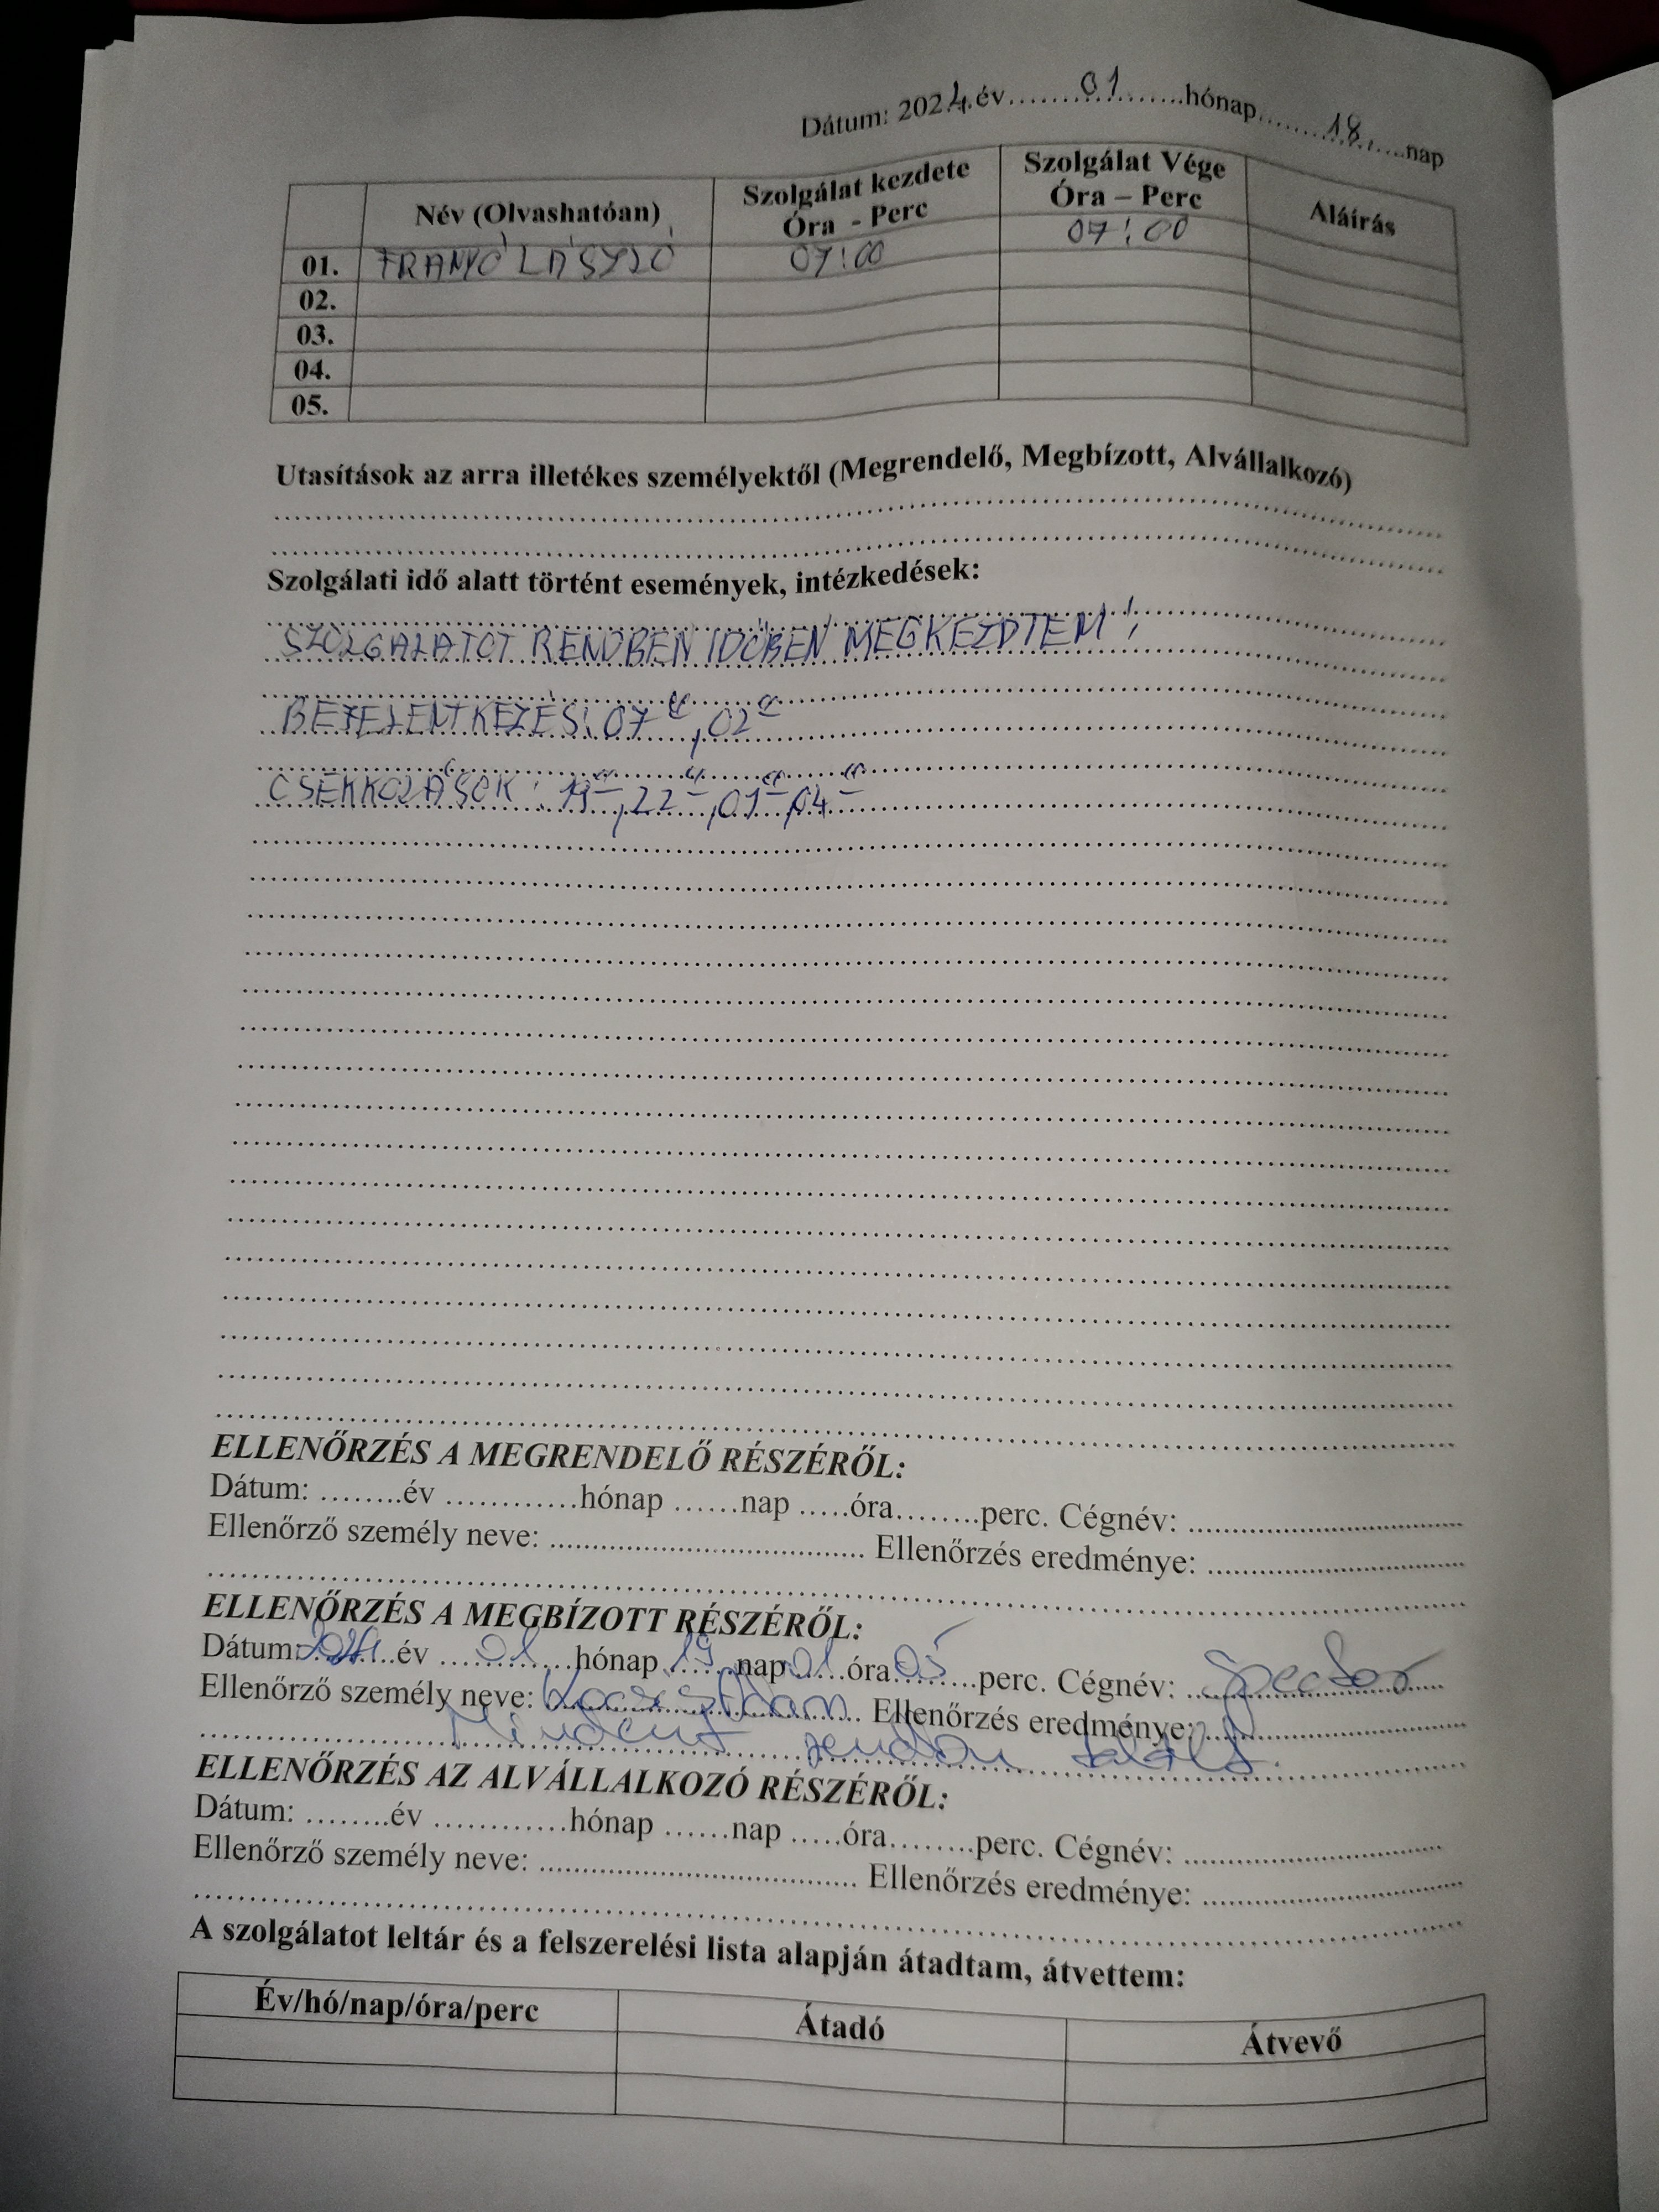 Dátum: 2024.év........01........hónap........18........nap
Név (Olvashatóan) Szolgálat kezdete Óra - Perc Szolgálat Vége Óra – Perc Aláírás
01. FRANYÓ LÁSZLÓ 07:00 07:00
02.
03.
04.
05.
Utasítások az arra illetékes személyektől (Megrendelő, Megbízott, Alvállalkozó)
Szolgálati idő alatt történt események, intézkedések:
SZOLGÁLATOT RENDBEN IDŐBEN MEGKEZDTEM!
BEJELENTKEZÉS: 07 00, 02 00
CSEKKOLÁSOK: 19 00, 22 00, 01 00, 04 00
ELLENŐRZÉS A MEGRENDELŐ RÉSZÉRŐL:
Dátum: ........év ............hónap ......nap .....óra........perc. Cégnév: ........................
Ellenőrző személy neve: ........................ Ellenőrzés eredménye: ........................
ELLENŐRZÉS A MEGBÍZOTT RÉSZÉRŐL:
Dátum: 2024 év 01 hónap 19 nap 01 óra 05 perc. Cégnév: Spector
Ellenőrző személy neve: Ellenőrzés eredménye:
Mindent rendben talált.
ELLENŐRZÉS AZ ALVÁLLALKOZÓ RÉSZÉRŐL:
Dátum: ........év ............hónap ......nap .....óra........perc. Cégnév: ........................
Ellenőrző személy neve: ........................ Ellenőrzés eredménye: ........................
A szolgálatot leltár és a felszerelési lista alapján átadtam, átvettem:
Év/hó/nap/óra/perc Átadó Átvevő